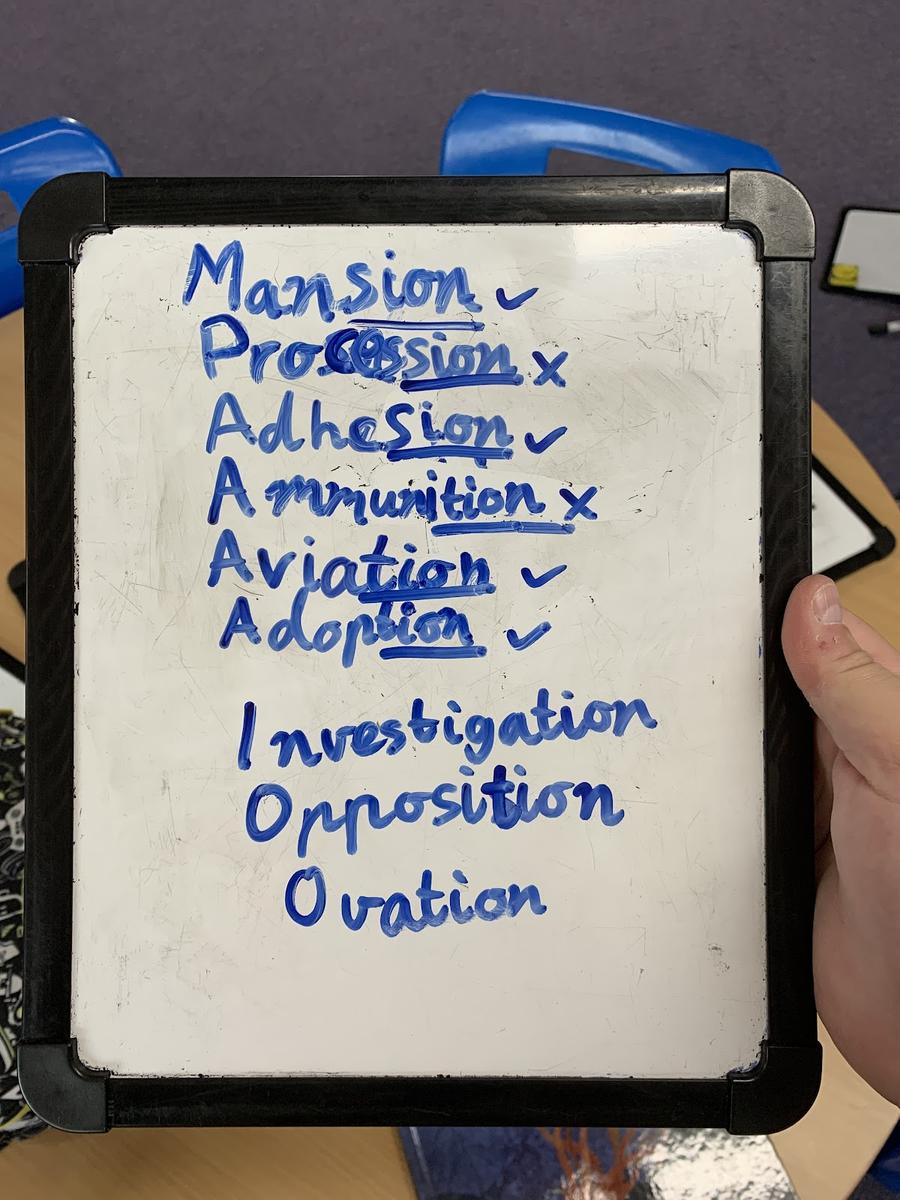 Mansion ✓
Procession x
Adhesion ✓
Ammunition x
Aviation ✓
Adoption ✓
Investigation
Opposition
Ovation